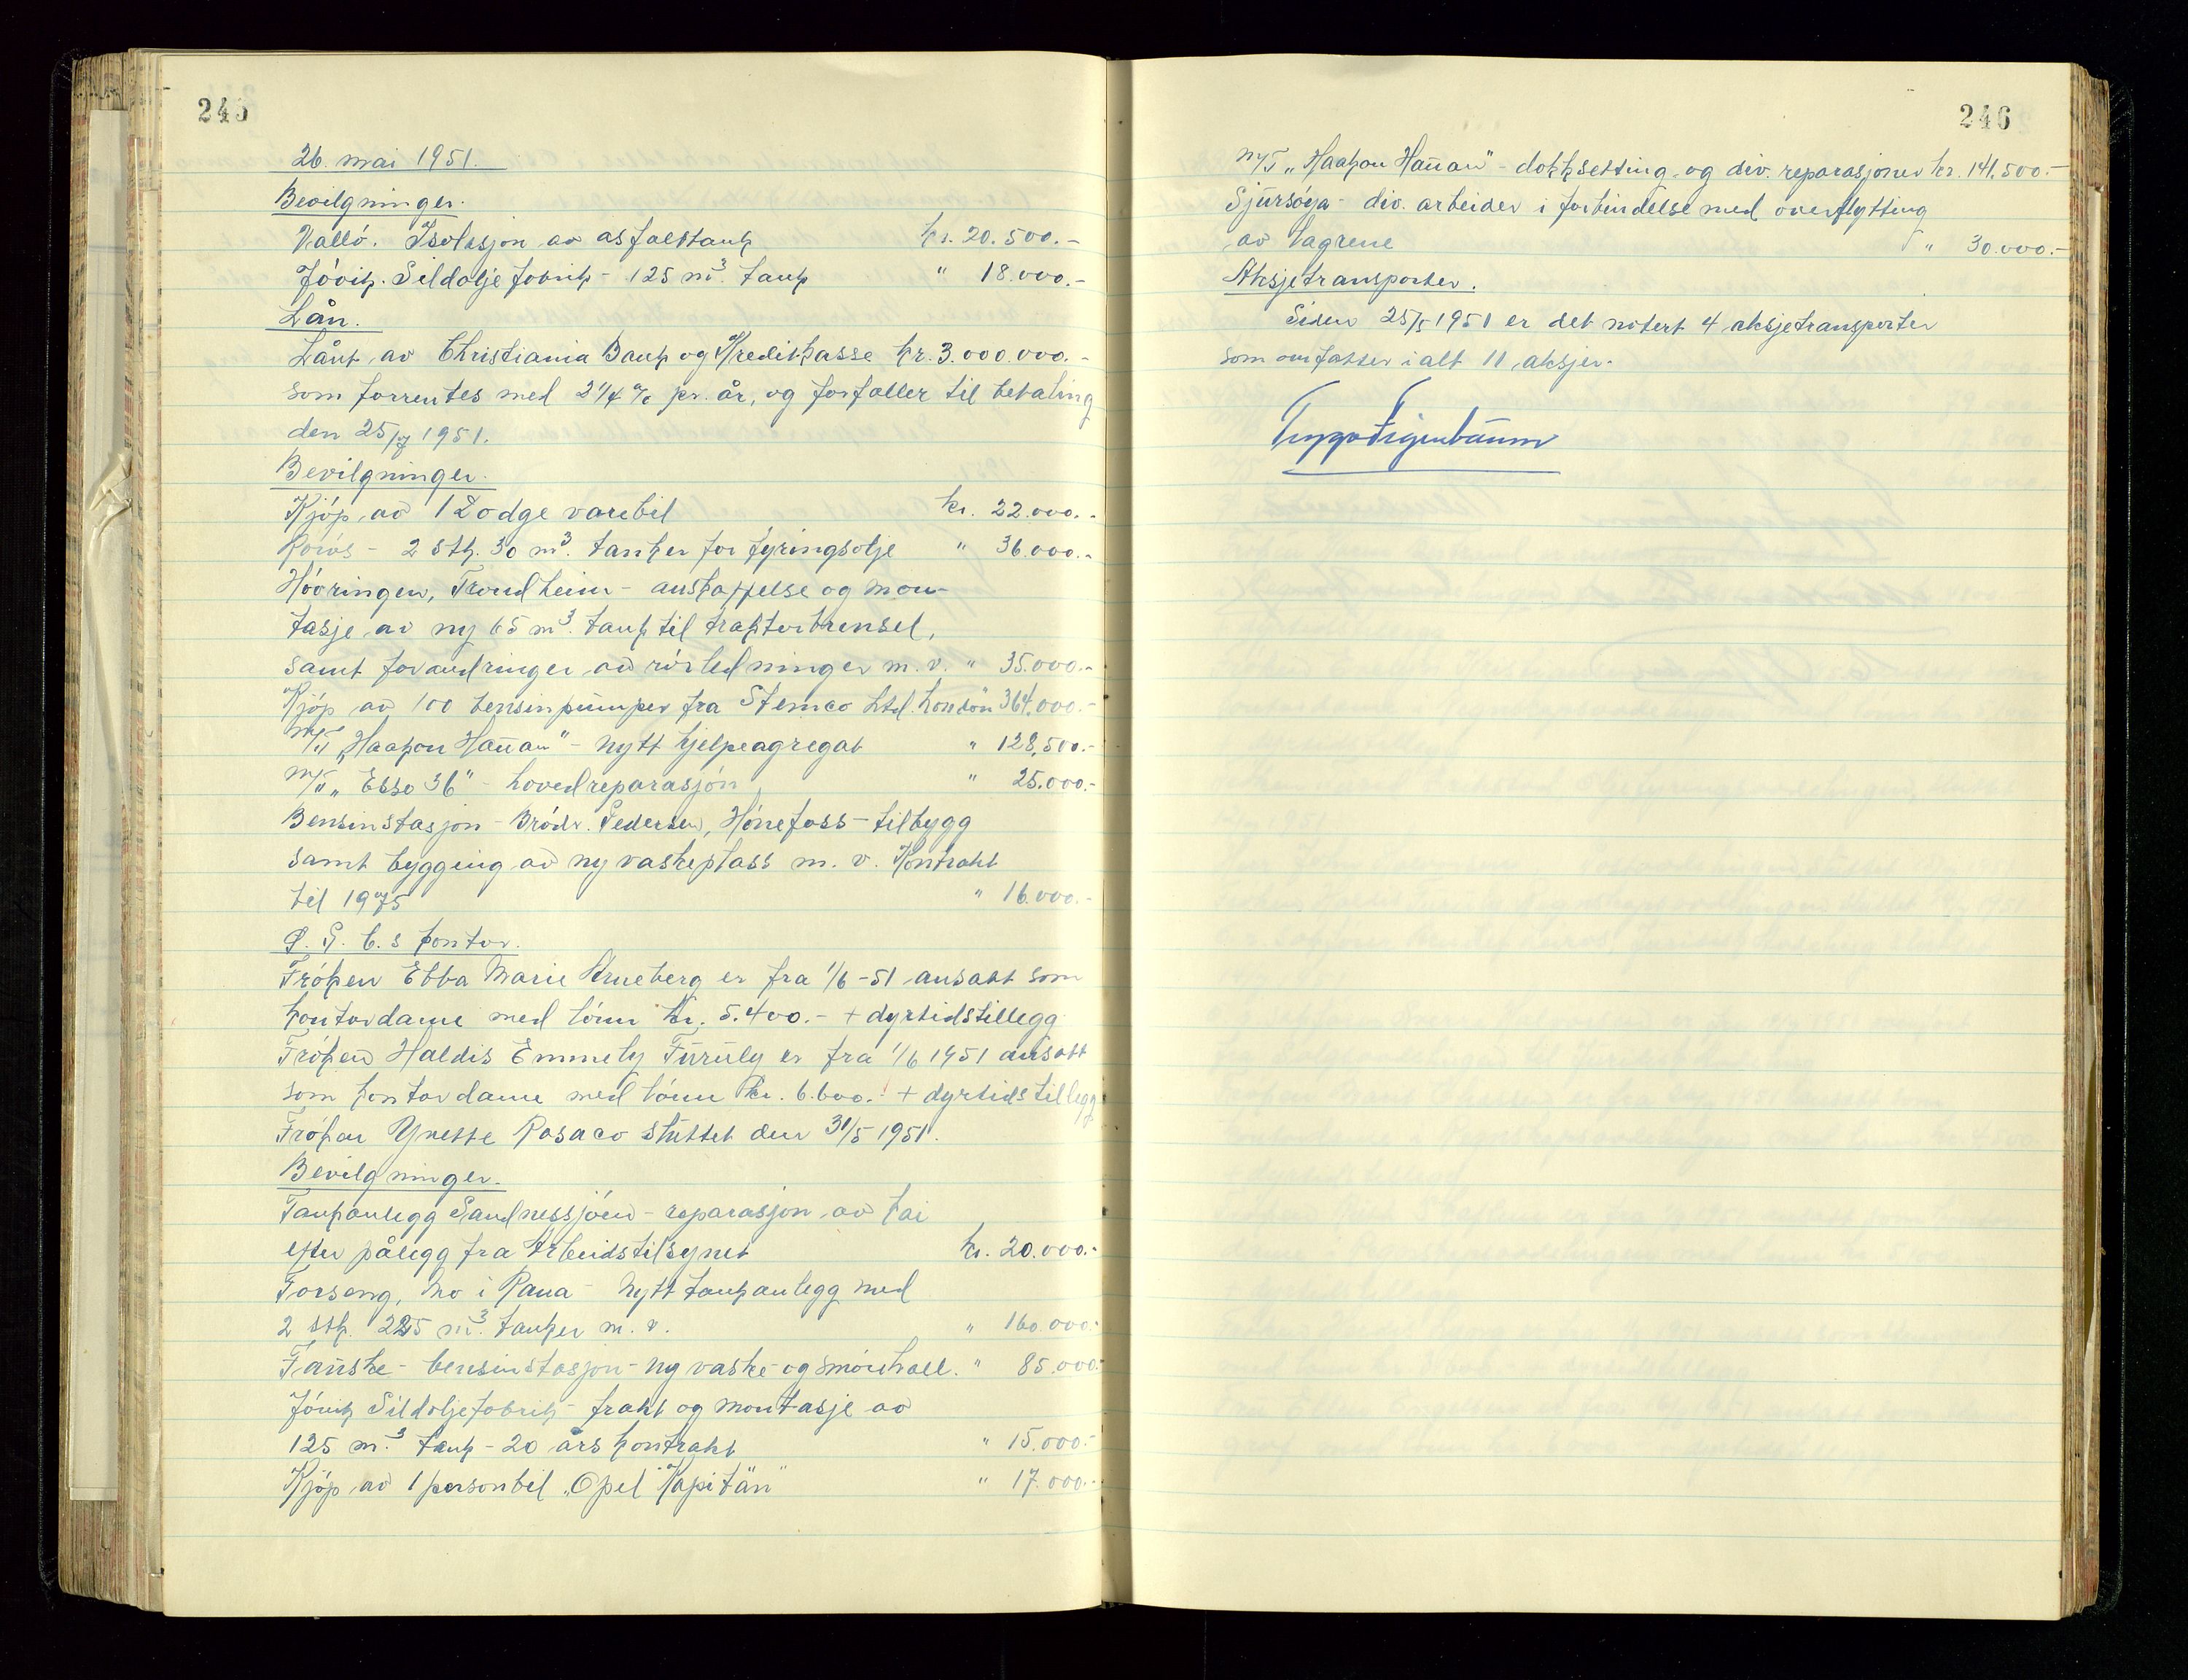 245
26. mai 1951.
Bevilgninger.
Vallö. Isolasjon av asfalttank kr. 20.500.-
Jövik. Sildoljefabrik - 125 m³. tank " 18.000.-
Lån.
Lånt av Christiania Bank og Kreditkasse kr. 3.000.000.-
som forrentes med 2 1/4 % pr. år, og forfaller til betaling
den 25/7 1951.
Bevilgninger.
Kjöp av 1 Dodge varebil kr. 22.000.-
Rörös - 2 stk. 30 m³. tanker for fyringsolje " 36.000.-
Hövringen, Trondheim - anskaffelse og mon-
tasje av ny 65 m³. tank til traktorbrensel,
samt forandringer av rörledninger m. v. " 35.000.-
Kjöp av 100 bensinpumper fra Stemco Ltd. London " 364.000.-
M/T „Haakon Hauan" - nytt hjelpeagregat " 128,500.-
M/T „Esso 36" - hovedreparasjon " 25.000.-
Bensinstasjon - Brödr. Pedersen, Hönefoss - tilbygg
samt bygging av ny vaskeplass m. v. Kontrakt
til 1975 " 16.000.-
P. G. C.s kontor.
Fröken Ebba Marie Arneberg er fra 1/6 - 51 ansatt som
kontordame med lönn kr. 5.400.- + dyrtidstillegg
Fröken Haldis Emmely Furuly er fra 1/6 1951 ansatt
som kontordame med lönn kr. 6.600.- + dyrtidstillegg
Fröken Ynette Rosaco sluttet den 31/5 1951.
Bevilgninger.
Tankanlegg Sandnessjöen - reparasjon av kai
efter pålegg fra Arbeidstilsynet kr. 20.000.-
Torseng, Mo i Rana - Nytt tankanlegg med
2 stk. 225 m³. tanker m. v. " 160.000.-
Fauske - bensinstasjon - ny vaske- og smörehall. " 85.000.-
Jövik Sildoljefabrik - frakt og montasje av
125 m.³ tank - 20 års kontrakt " 15.000.-
Kjöp av 1 personbil „Opel Kapitän" " 17.000.-
246
M/T „Haakon Hauan" - dokksetting og div. reparasjoner kr. 141.500.-
Sjursöya - div. arbeider i forbindelse med overflytting
av lagrene " 30.000.-
Aksjetransporter.
Siden 25/5 1951 er det notert 4 aksjetransporter
som omfatter i alt 11 aksjer.